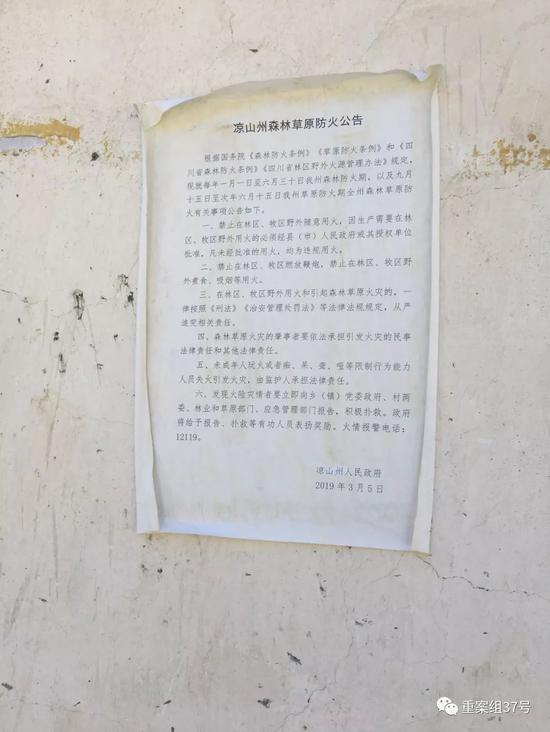 凉山州森林草原防火公告
根据国务院《森林防火条例》《草原防火条例》和《四
川省森林防火条例》《四川省林区野外火源管理办法》规定,
现就每年一月一日至六月三十日我州森林防火期,以及九月
十五日至次年六月十五日我州草原防火期全州森林草原防
火有关事项公告如下。
一、禁止在林区、牧区野外随意用火,因生产需要在林
区、牧区野外用火的必须经县(市)人民政府或其授权单位
批准,凡未经批准的用火,均为违规用火。
二、禁止在林区、牧区燃放鞭炮,禁止在林区、牧区野
外煮食、吸烟等用火。
三、在林区、牧区野外用火和引起森林草原火灾的,一
律按照《刑法》《治安管理处罚法》等法律法规规定,从严
追究相关责任。
四、森林草原火灾的肇事者要依法承担引发火灾的民事
法律责任和其他法律责任。
五、未成年人玩火或者痴、呆、聋、哑等限制行为能力
人员失火引发火灾,由监护人承担法律责任。
六、发现火险灾情者要立即向乡(镇)党委政府、村两
委、林业和草原部门、应急管理部门报告,积极扑救。政府
将给予报告、扑救等有功人员表扬奖励。火情报警电话:
12119。
凉山州人民政府
2019年3月5日
重案组37号